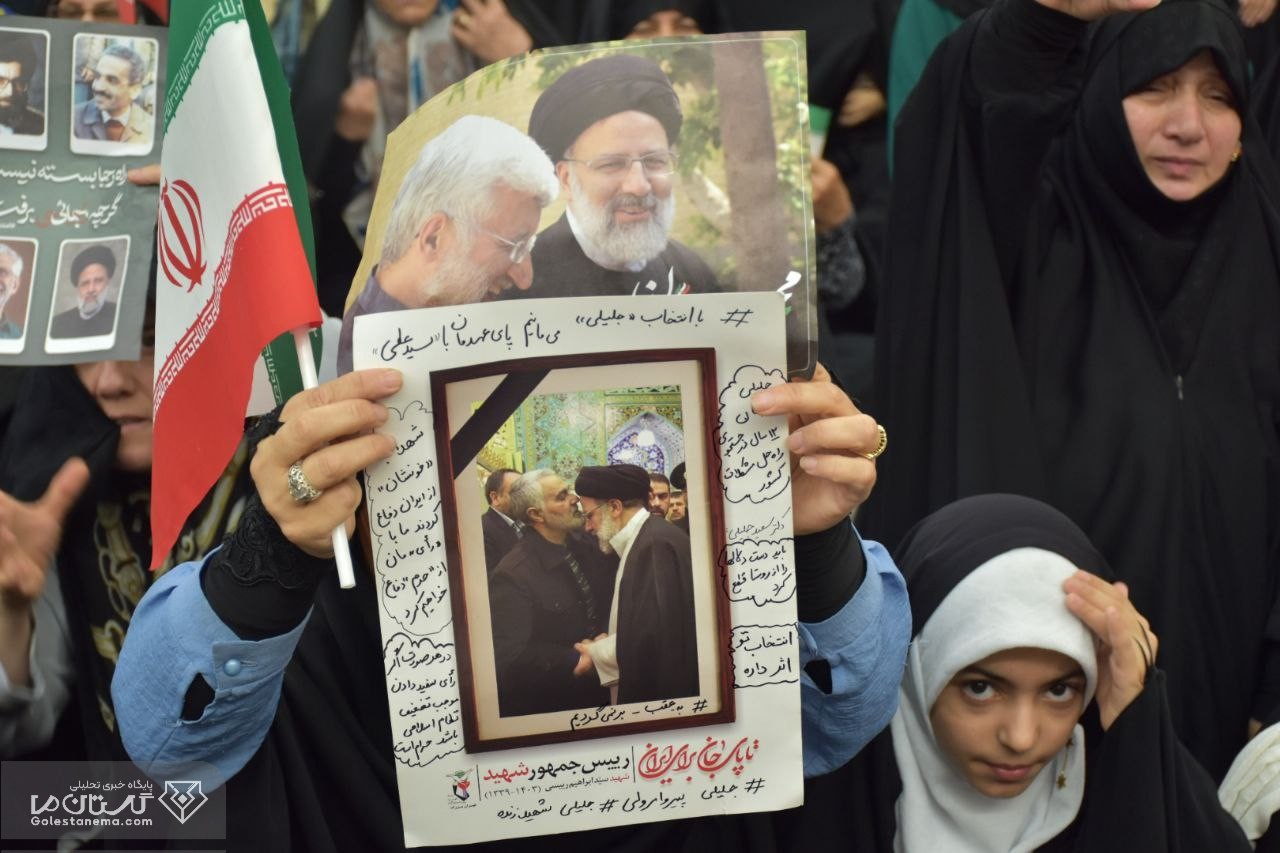 راه رجا بسته نیست
گرچه سلیمانی برفت
# با انتخاب «جلیلی»
می‌مانیم پای عهدمان با «سید علی»
شهدا با
«خونشان»
از ایران دفاع
کردند ما با
«رأی» مان
از "حرم" دفاع
خواهیم کرد
در هر صورت اگر
رأی سفید دادن
موجب تضعیف
نظام اسلامی
باشد حرام است
جلیلی
۱۲ سال در جستجوی
راه حل مشکلات
کشور
دکتر سعید جلیلی
باید دست دلالها
را از روستا قطع
کرد
انتخاب تو
اثر داره
# به عقب - برنمی گردیم
تا پای جان برای ایران
رییس جمهور شهید
شهید سید ابراهیم رییسی (۱۴۰۳-۱۳۳۹)
# جلیلی پیرو ولی # جلیلی شهید زنده
پایگاه خبری تحلیلی
گلستان ما
Golestanema.com